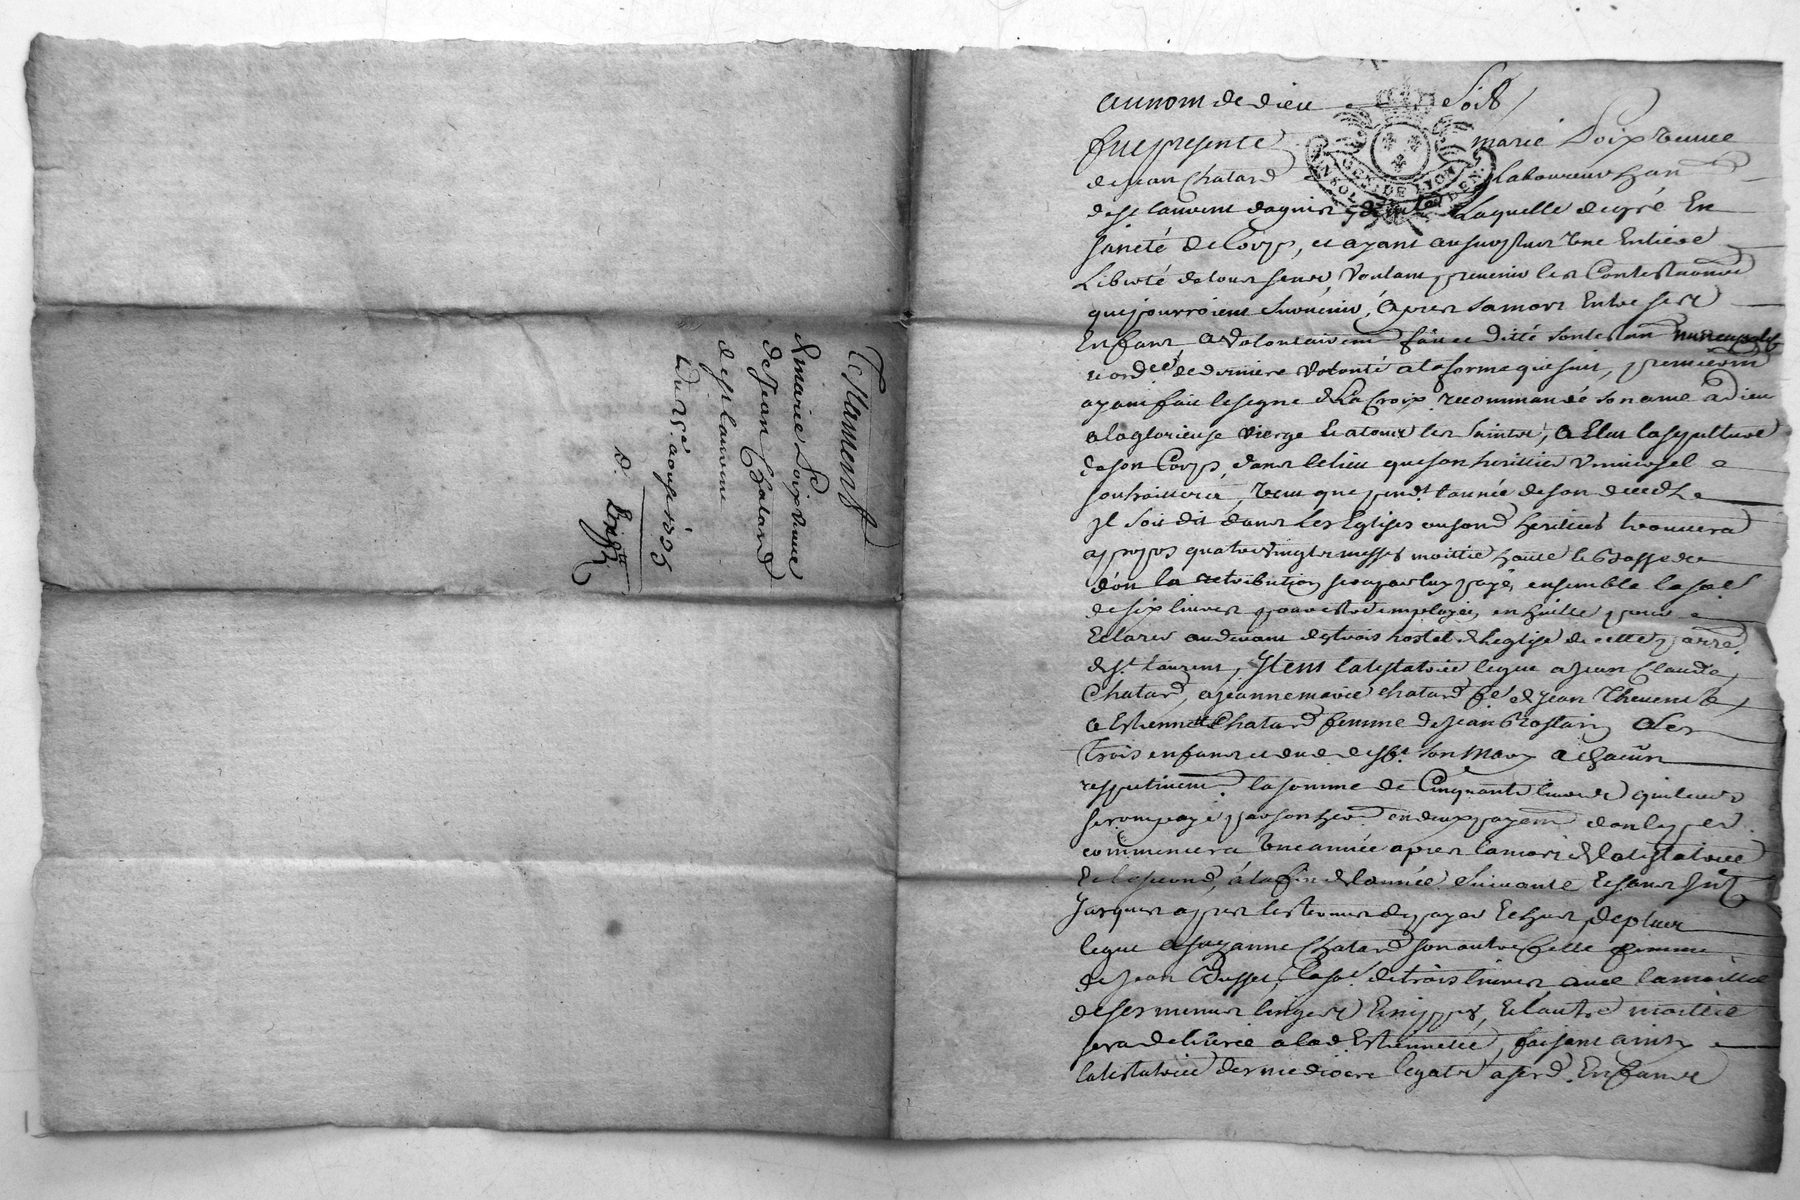 Testament
de marie Soix veuve
de Jean Chatard
de st laurent
Du 25e aoust 1735
au nom de dieu soit
fut presente marie Soix veuve
GEN. DE LYON
de jean Chatard laboureur han
de st laurent dagnier laquelle de gré En
santé de Corps, et ayant au surplus Une Entiere
Liberté de tour sens, Voulant prevenir les Contestations
qui pourroient survenir, Apres sa mort Entre ses
Enfans a volontairemt fait et dité son testam nuncupatif
et ordce de derniere volonté a la forme que suit, premieremt
ayant fait le signe de la Croix recommandé son ame a Dieu
a la glorieuse vierge Et a tous les saints, a Elu la sepulture
de son Corps, dans le lieu que son heritier Universel
veut que pendt l'année de son deceds
Il soit dit dans les Eglises ou sond heritier trouvera
a propos quatre vingts messes moittie haute et basse
dont la retribution sera par luy payé, ensemble la so͞e
de six livres pour estre employée, en huille pour
Eclairer au devant de hostel de leglise de cette parre
de st laurent, Item la testatrice legue a jean Claude
Chatard, a jeanne marie chatard fe de jean Thevenet
a Estiennette Chatard femme de jean a les
Trois enfans et dud deft son mary a chacun
respectivemt la somme de Cinquante livres qui leur
sera payé par son her en deux payemt dont le per
commencera Une année apres la mort de la testatrice
Et le second, a la fin de l'année suivante Et sans Int
jusques apres les termes de payer Echus, de plus
legue a suzanne Chatard son autre fille femme
de jean Dusset, la so. de trois livres avec la moittie
de ses menus linges Et nippes, Et l'autre moittie
sera delivrée a lad. Estiennette, faisant ainsy
la testatrice des mediocre legats a sesd. Enfans